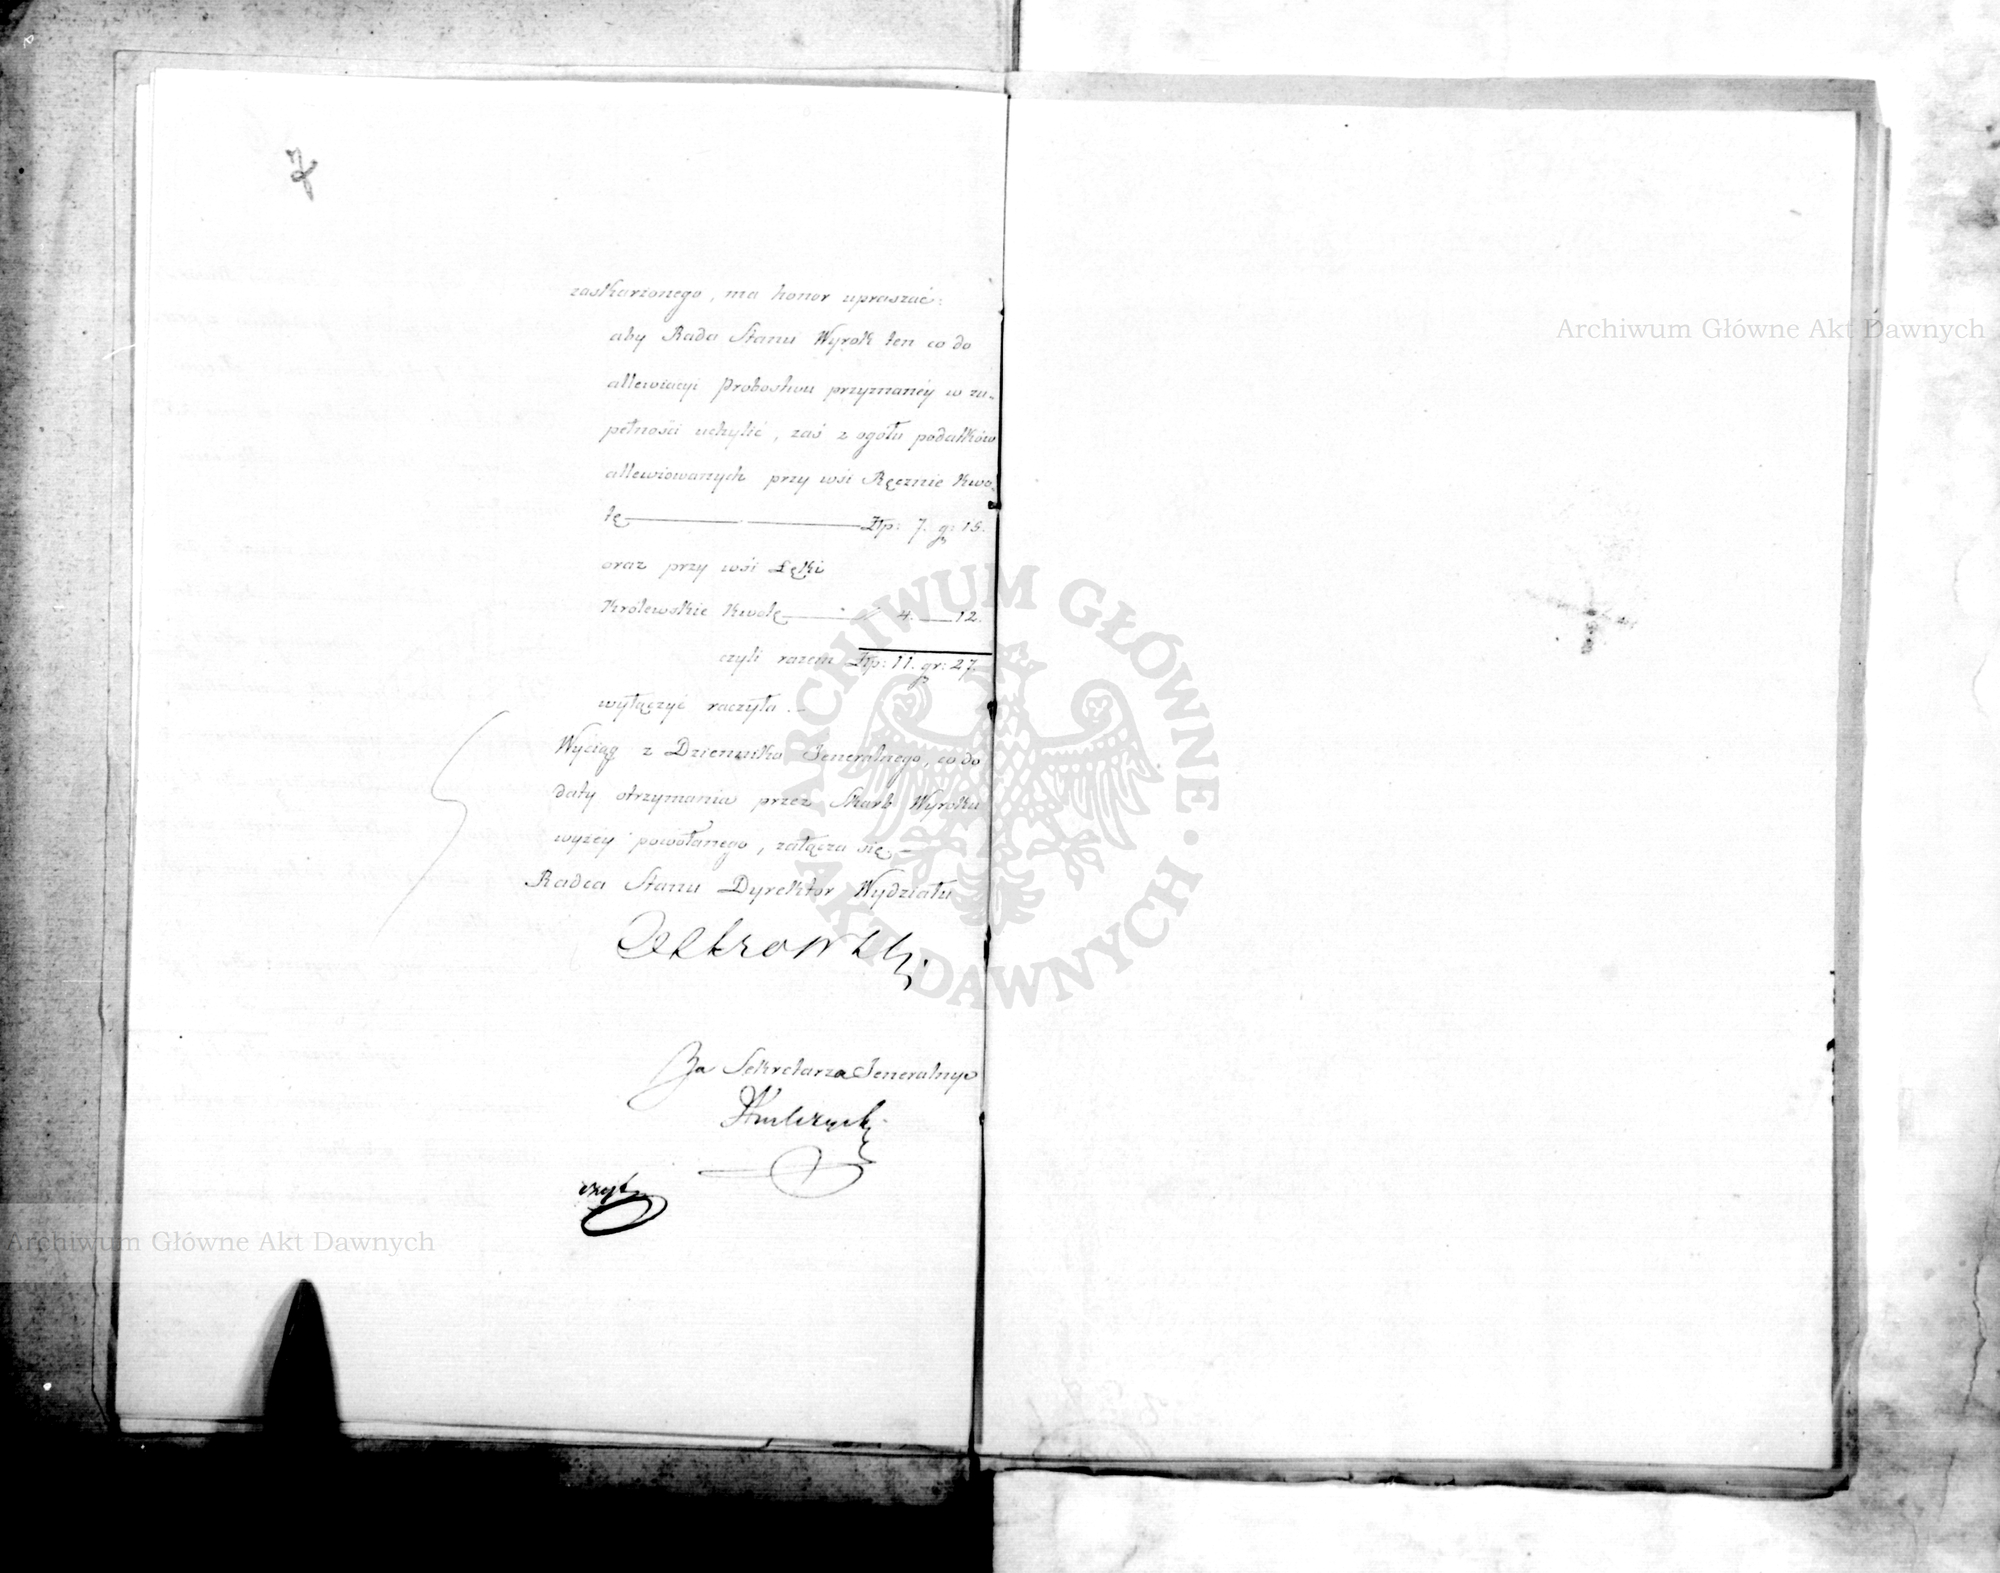 7
zaskarżonego, ma honor upraszać:
aby Rada Stanu Wyrok ten co do
allewiacyi Probostwu przyznanéy w zu-
pełności uchylić, zaś z ogółu podatków
allewiowanych przy wsi Ręcznie kwo-
tę Złp: 7. gr: 15.
oraz przy wsi Łęki
Królewskie kwotę 4. 12.
czyli razem Złp: 11. gr: 27.
wyłączyć raczyła.
Wyciąg z Dziennika Jeneralnego, co do
daty otrzymania przez Skarb Wyroku
wyżéy powołanego, załącza się
Radca Stanu Dyrektor Wydziału
Za Sekretarza Jeneralnego
ARCHIWUM GŁÓWNE AKT DAWNYCH
Archiwum Główne Akt Dawnych
Archiwum Główne Akt Dawnych